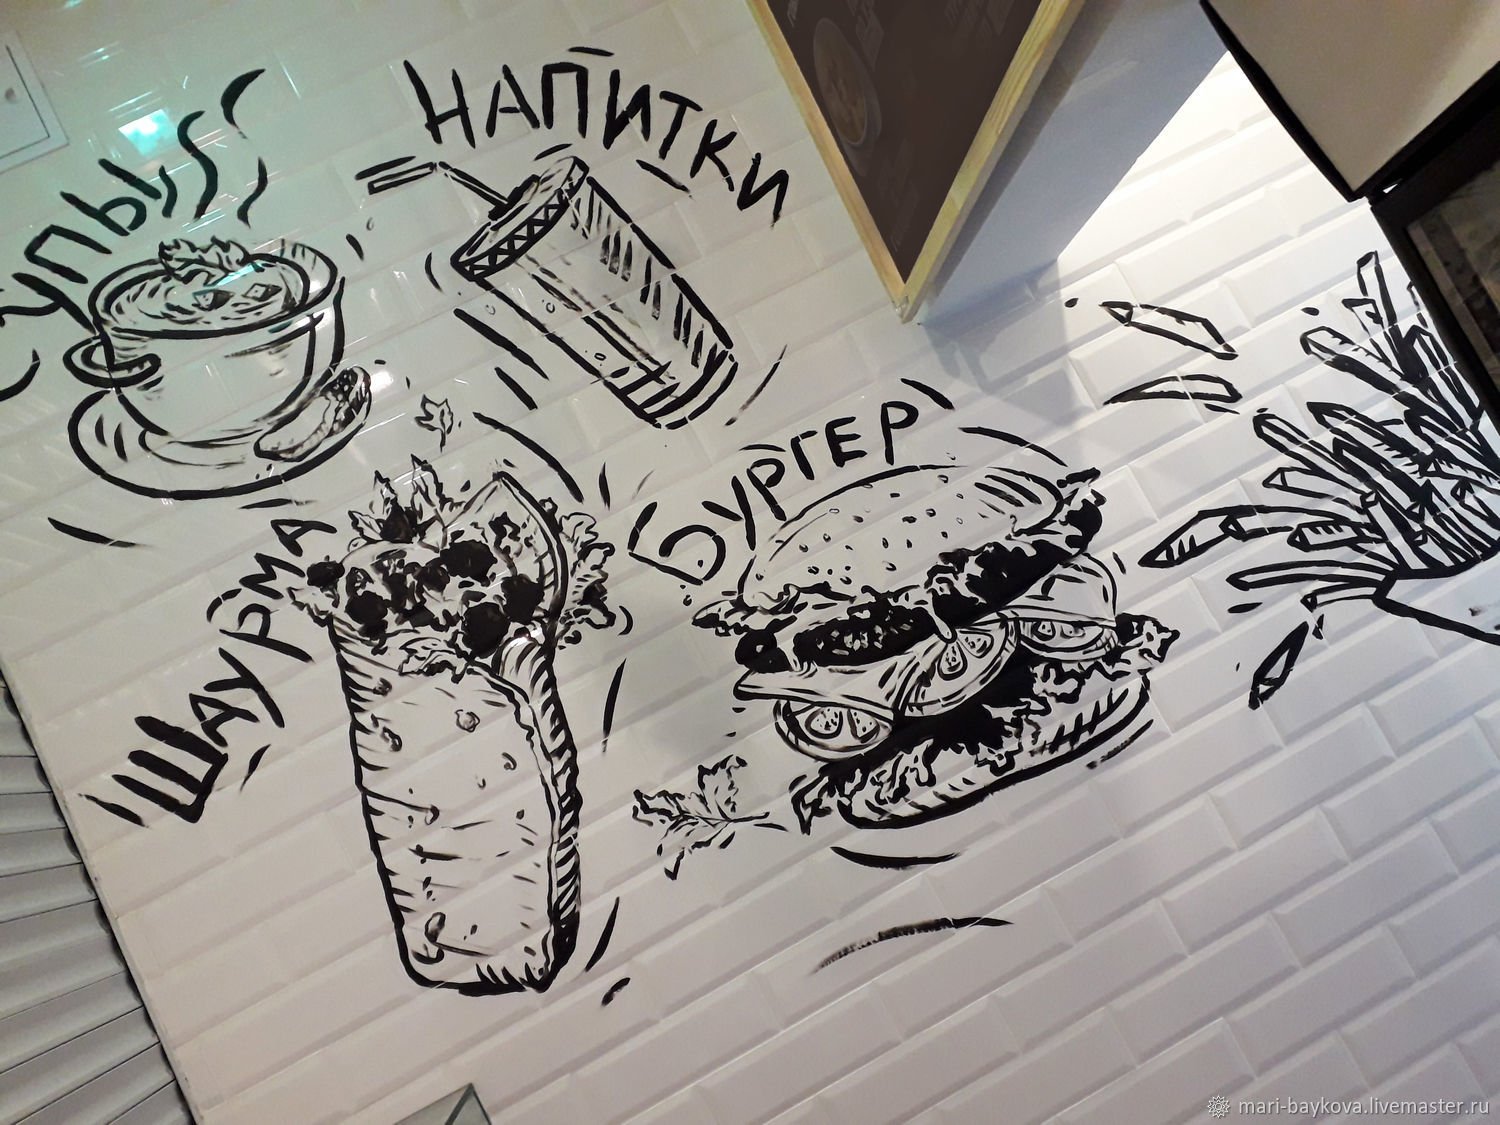 НАПИТКИ
УПЫ
БУРГЕР
ШАУРМА
mari-baykova.livemaster.ru